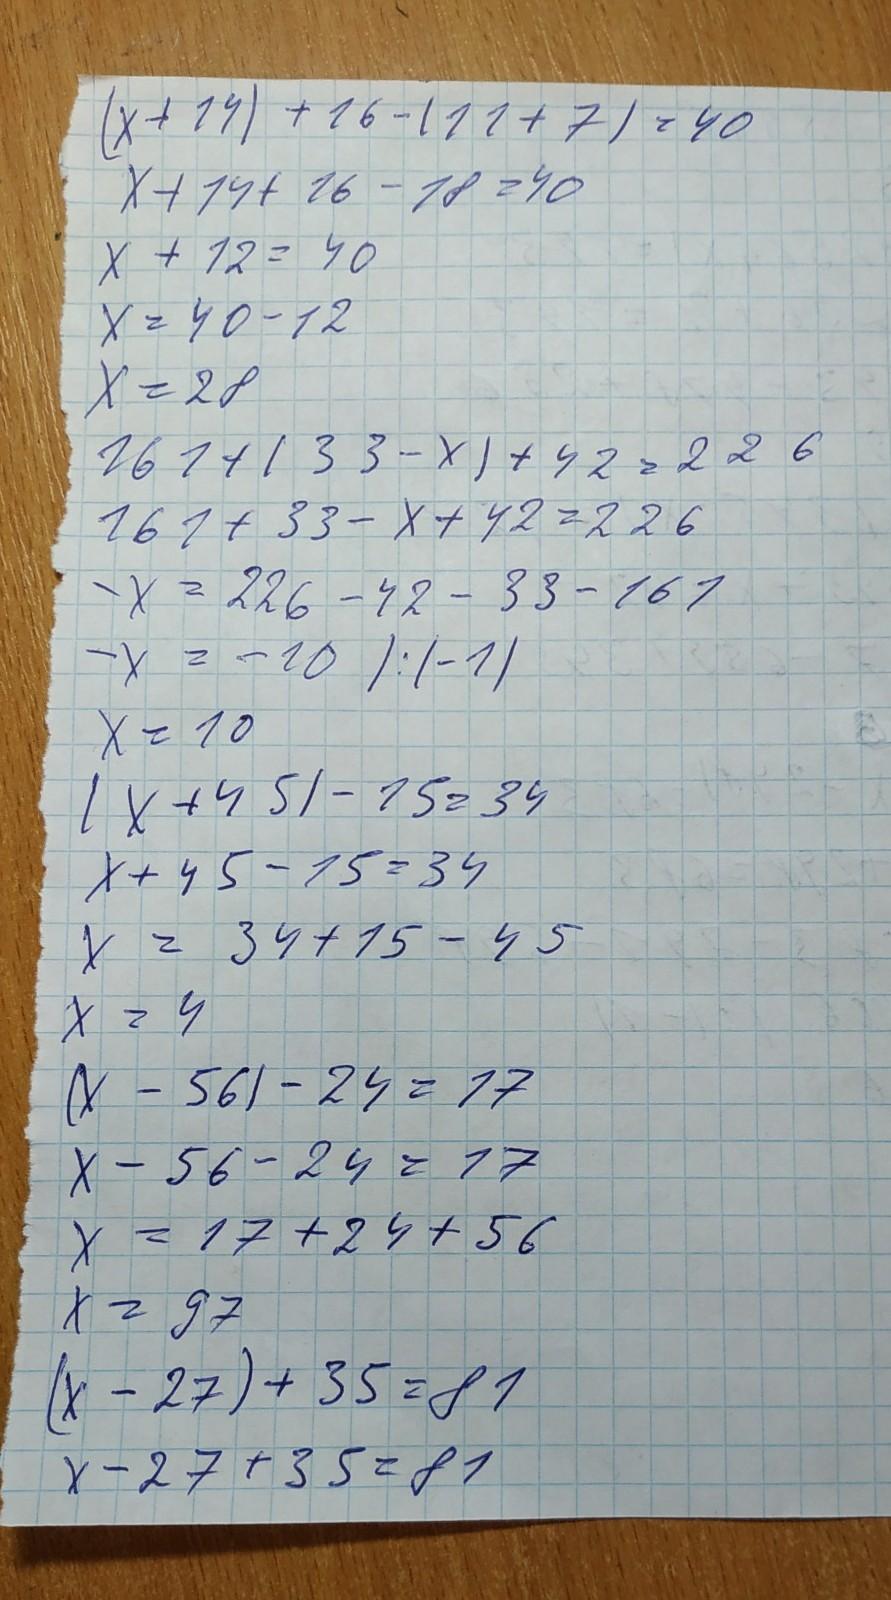 (x+14)+16-(11+7)=40
x+14+16-18=40
x+12=40
x=40-12
x=28
161+(33-x)+42=226
161+33-x+42=226
-x=226-42-33-161
-x=-10 |:(-1)
x=10
(x+45)-15=34
x+45-15=34
x=34+15-45
x=4
(x-56)-24=17
x-56-24=17
x=17+24+56
x=97
(x-27)+35=81
x-27+35=81